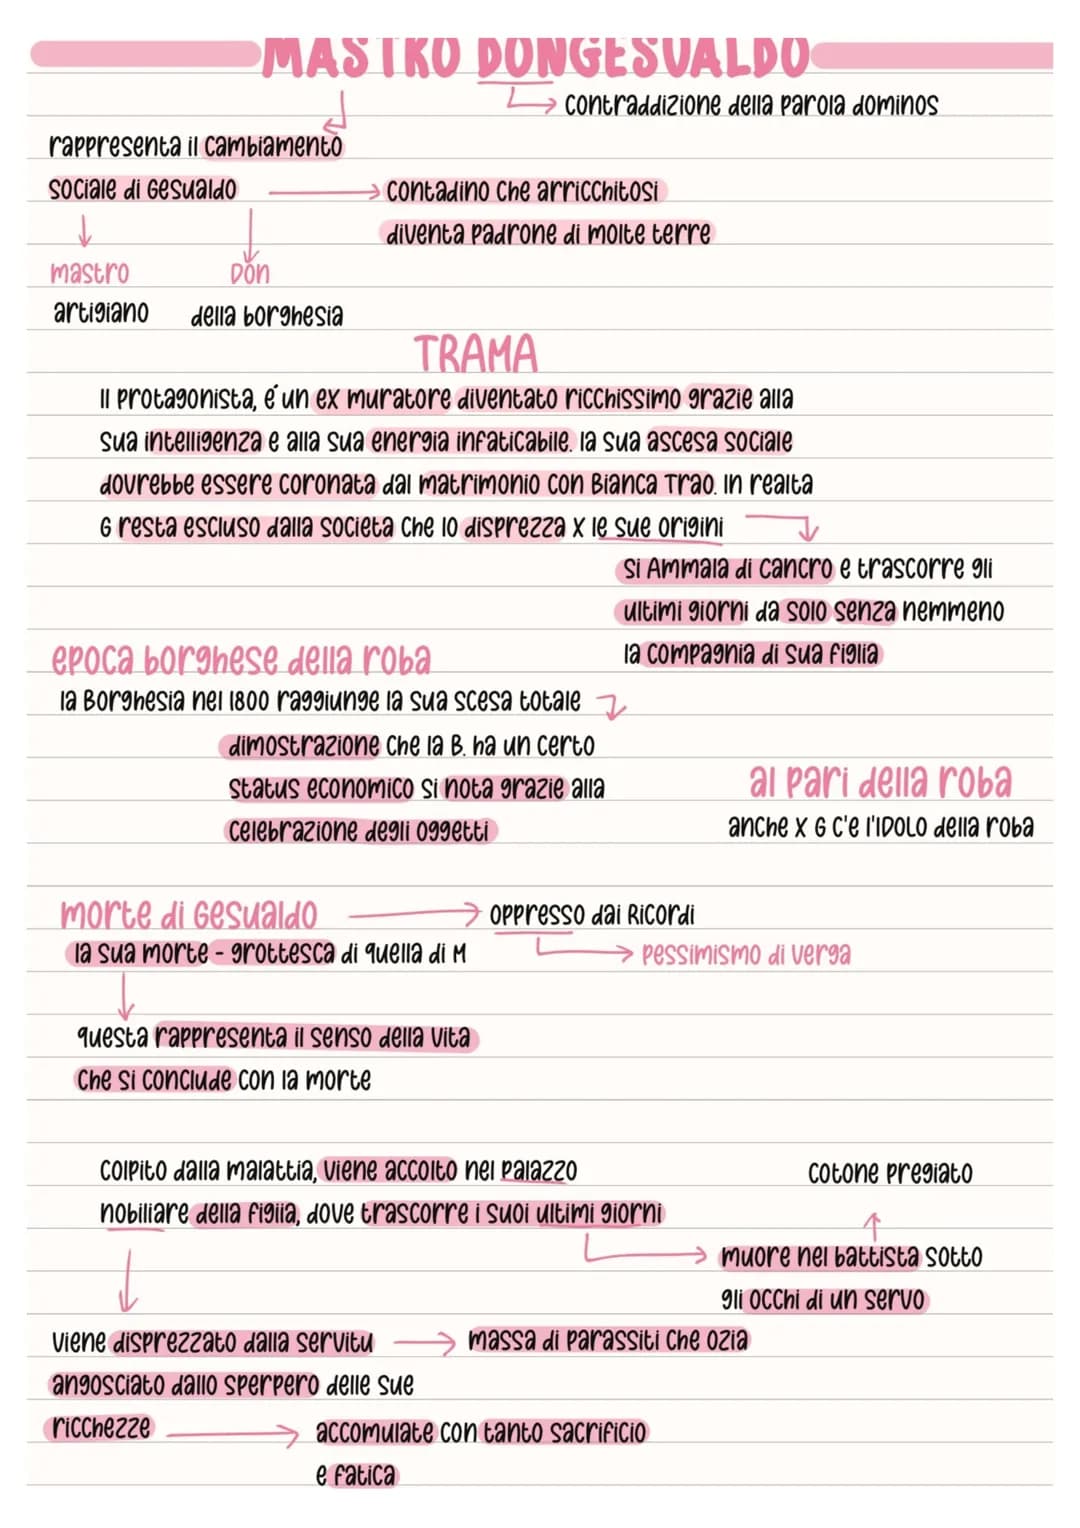 MASTRO DONGESUALDO
contraddizione della parola dominos
rappresenta il cambiamento
sociale di Gesualdo
contadino che arricchitosi
diventa padrone di molte terre
mastro
Don
artigiano
della borghesia
TRAMA
Il protagonista, é un ex muratore diventato ricchissimo grazie alla
sua intelligenza e alla sua energia infaticabile. la sua ascesa sociale
dovrebbe essere coronata dal matrimonio con Bianca Trao. In realta
G resta escluso dalla societa che lo disprezza x le sue origini
si Ammala di cancro e trascorre gli
ultimi giorni da solo senza nemmeno
la compagnia di sua figlia
epoca borghese della roba
la Borghesia nel 1800 raggiunge la sua scesa totale
dimostrazione che la B. ha un certo
status economico si nota grazie alla
celebrazione degli oggetti
al pari della roba
anche x G c'e l'IDOLO della roba
morte di Gesualdo
oppresso dai Ricordi
la sua morte - grottesca di quella di M
pessimismo di verga
questa rappresenta il senso della vita
che si conclude con la morte
Colpito dalla malattia, viene accolto nel palazzo
nobiliare della figlia, dove trascorre i suoi ultimi giorni
cotone pregiato
muore nel battista sotto
gli occhi di un servo
viene disprezzato dalla servitu
massa di parassiti che ozia
angosciato dallo sperpero delle sue
ricchezze
accomulate con tanto sacrificio
e fatica